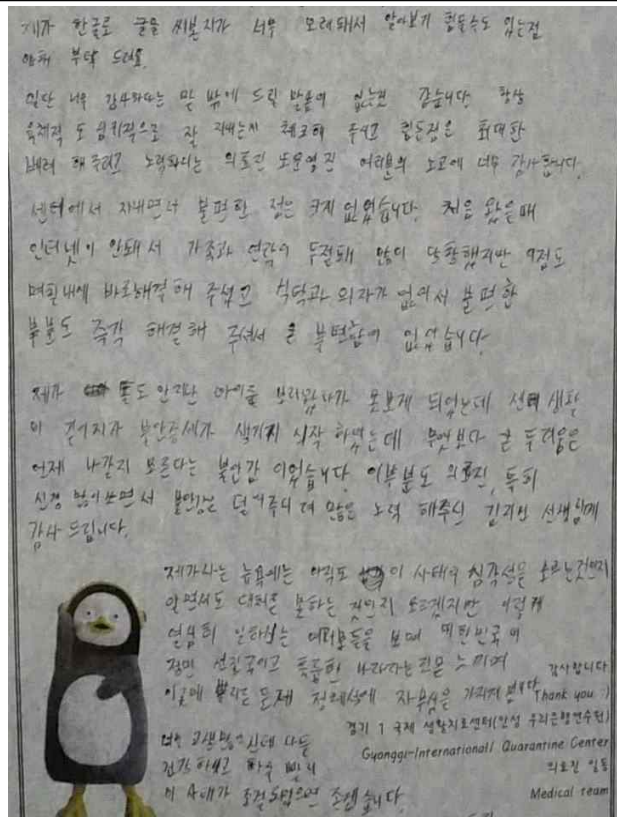 제가 한글로 글을 써본지가 너무 오래돼서 알아보기 힘들수도 있는점
양해 부탁 드려요.
일단 너무 감사하다는 말 밖에 드릴 말씀이 없는것 같습니다. 항상
육체적 도 심리적으로 잘 지내는지 체크해 주시고 힘든점은 최대한
배려 해주려고 노력하시는 의료진 또 운영진 여러분의 노고에 너무 감사합니다.
센터에서 지내면서 불편한 점은 크게 없었습니다. 처음 왔을때
인터넷이 안돼서 가족과 연락이 두절돼 많이 당황했지만 그점도
며칠내에 바로해결해 주셨고 식탁과 의자가 없어서 불편한
부분도 즉각 해결해 주셔서 큰 불편함이 없었습니다.
제가 돌도 안지난 아이를 보러왔다가 못보게 되었는데 센터 생활
이 길어지자 불안증세가 생기기 시작 하였는데 무엇보다 큰 두려움은
언제 나갈지 모른다는 불안감 이었습니다. 이부분도 의료진, 특히
신경 많이쓰면서 불안감을 덜어주시려 많은 노력 해주신 김지인 선생님께
감사 드립니다.
제가사는 뉴욕에는 아직도 이 사태의 심각성을 모르는것인지
알면서도 대처를 못하는 것인지 모르겠지만 이렇게
열심히 일하시는 여러분들을 보며 대한민국이
정말 선진국이고 훌륭한 나라라는것을 느끼며
이곳에 뿌리를 둔 제 정체성에 자부심을 가지게 됩니다
너무 고생많으신데 다들
건강 하시고 하루 빨리
이 사태가 종결되었으면 좋겠습니다.
감사합니다
Thank you :)
경기 1 국제 생활치료센터(안성 우리은행연수원)
Gyonggi-International/ Quarantine Center
의료진 일동
Medical team